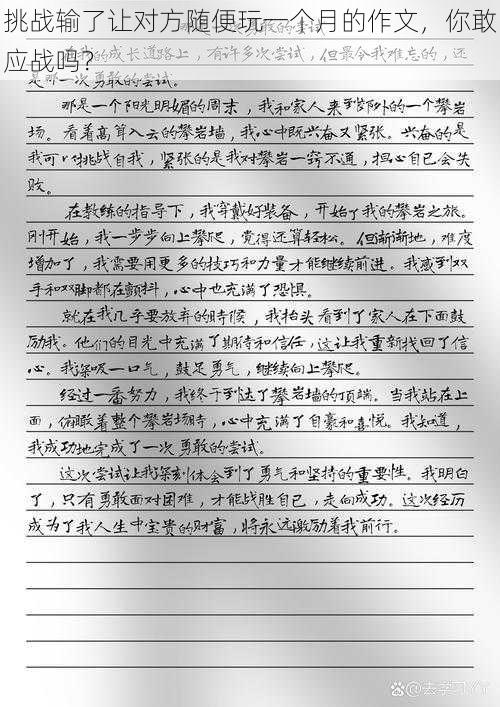 挑战输了让对方随便玩一个月的作文，你敢
应战吗？
在我的成长道路上，有许多次尝试，但最令我难忘的，还
是那一次勇敢的尝试。
那是一个阳光明媚的周末，我和家人来到郊外的一个攀岩
场。看着高耸入云的攀岩墙，我心中既兴奋又紧张。兴奋的是
我可以挑战自我，紧张的是我对攀岩一窍不通，担心自己会失
败。
在教练的指导下，我穿戴好装备，开始了我的攀岩之旅。
刚开始，我一步步向上攀爬，觉得还算轻松。但渐渐地，难度
增加了，我需要用更多的技巧和力量才能继续前进。我感到双
手和双脚都在颤抖，心中也充满了恐惧。
就在我几乎要放弃的时候，我抬头看到了家人在下面鼓
励我。他们的目光中充满了期待和信任，这让我重新找回了信
心。我深吸一口气，鼓足勇气，继续向上攀爬。
经过一番努力，我终于到达了攀岩墙的顶端。当我站在上
面，俯瞰着整个攀岩场时，心中充满了自豪和喜悦。我知道，
我成功地完成了一次勇敢的尝试。
这次尝试让我深刻体会到了勇气和坚持的重要性。我明白
了，只有勇敢面对困难，才能战胜自己，走向成功。这次经历
成为了我人生中宝贵的财富，将永远激励着我前行。
@去学习